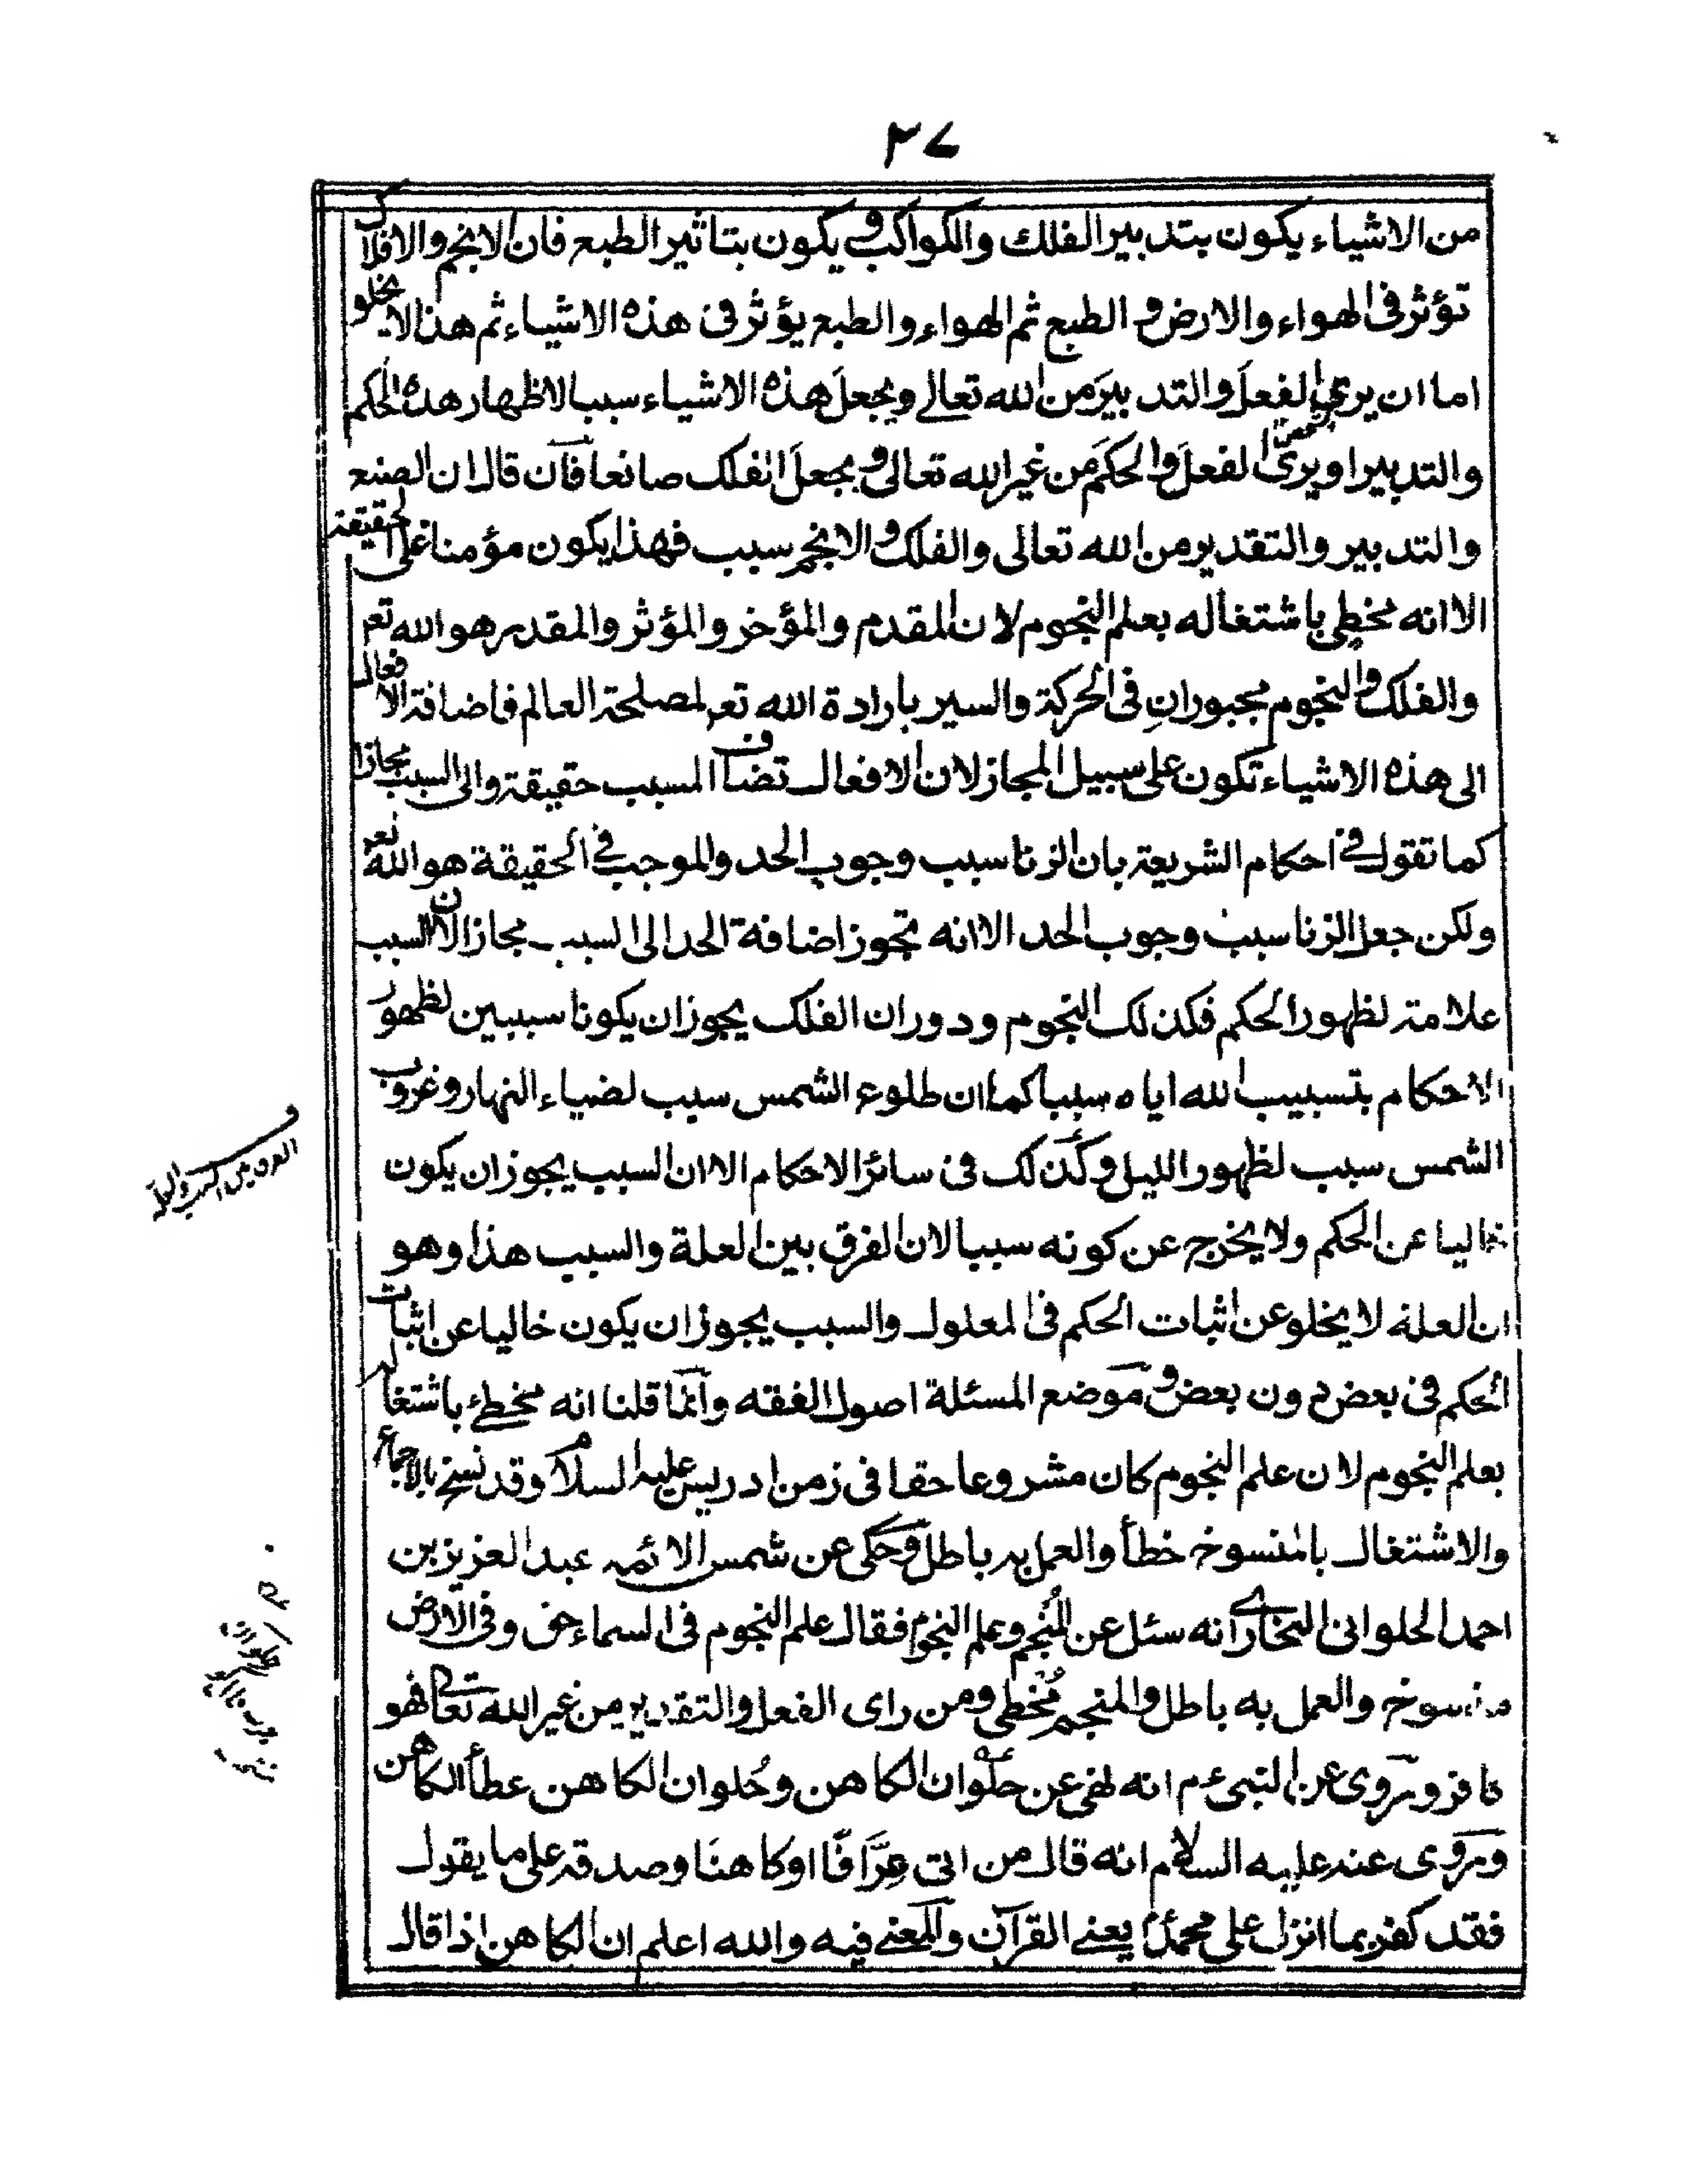 ٣٧
من الاشياء يكون بتدبير الفلك والكواكب ويكون بتاثير الطبع فان الانجم والافلاك
تؤثر فى الهواء والارض و الطبع ثم الهواء والطبع يؤثر فى هذه الاشياء ثم هذا لا يخلو
اما ان يرى الفعل والتدبير من الله تعالى ويجعل هذه الاشياء سببا لاظهار هذه الحكم
والتدبير او يرى الفعل والحكم من غير الله تعالى و يجعل الفلك صانعا فان قال ان الصنع
والتدبير والتقدير من الله تعالى والفلك والانجم سبب فهذا يكون مؤمنا على الحقيقة
الا انه مخطى باشتغاله بعلم النجوم لان المقدم والمؤخر والمؤثر والمقدر هو الله تع
والفلك والنجوم مجبوران فى الحركة والسير بارادة الله تع لمصلحة العالم فاضافة الافعال
الى هذه الاشياء تكون على سبيل المجاز لان الافعال تضاف المسبب حقيقة والى السبب مجازا
كما تقول فى احكام الشريعة بان الزنا سبب وجوب الحد والموجب فى الحقيقة هو الله تع
ولكن جعل الزنا سبب وجوب الحد الا انه تجوز اضافة الحد الى السبب مجازا لان السبب
علامة لظهور الحكم فكذلك النجوم ودوران الفلك يجوز ان يكونا سببين لظهور
الاحكام بتسبيب الله اياه سببا كما ان طلوع الشمس سبب لضياء النهار وغروب
الشمس سبب لظهور الليل وكذلك فى سائر الاحكام الا ان السبب يجوز ان يكون
خاليا عن الحكم ولا يخرج عن كونه سببا لان الفرق بين العلة والسبب هذا وهو
ان العلة لا يخلو عن اثبات الحكم فى المعلول والسبب يجوز ان يكون خاليا عن اثبات
الحكم فى بعض دون بعض و موضع المسئلة اصول الفقه وانما قلنا انه مخطئ باشتغاله
بعلم النجوم لان علم النجوم كان مشروعا حقا فى زمن ادريس عليه السلام وقد نسخ بالاجماع
والاشتغال بالمنسوخ خطأ والعمل به باطل وحكى عن شمس الائمه عبد العزيز بن
احمد الحلوانى البخارى انه سئل عن المنجم وعلم النجوم فقال علم النجوم فى السماء حق وفى الارض
منسوخ والعمل به باطل والمنجم مُخطى ومن راى الفعل والتقدير من غير الله تعالى فهو
كافر وروى عن النبى ءم انه نهى عن حلوان الكاهن وحُلوان الكاهن عطأ الكاهن
وروى عنه عليه السلام انه قال من اتى عرَّافًا او كاهنا وصدقه على ما يقول
فقد كفر بما انزل على محمد يعنى القرآن والمعنى فيه والله اعلم ان الكاهن اذا قال
ف
الفرق بين السبب والعلة